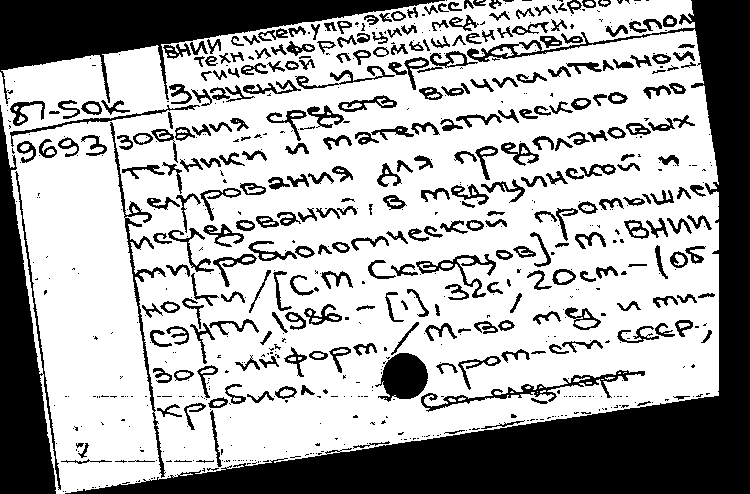 ВНИИ систем.упр., экон.исследов
техн.информации мед. и микробио
гической промышленности.
Значение и перспективы исполь
87-50К
9693
зования средств вычислительной
техники и математического мо-
делирования для предплановых
исследований в медицинской и
микробиологической промышлен
ности / [С.М. Скворцов]. - М.: ВНИИ-
СЭНТИ, 1986. - [1], 32с.; 20см. - (Об-
зор. информ. / М-во мед. и ми-
кробиол. пром-сти СССР;
См. след. карт.